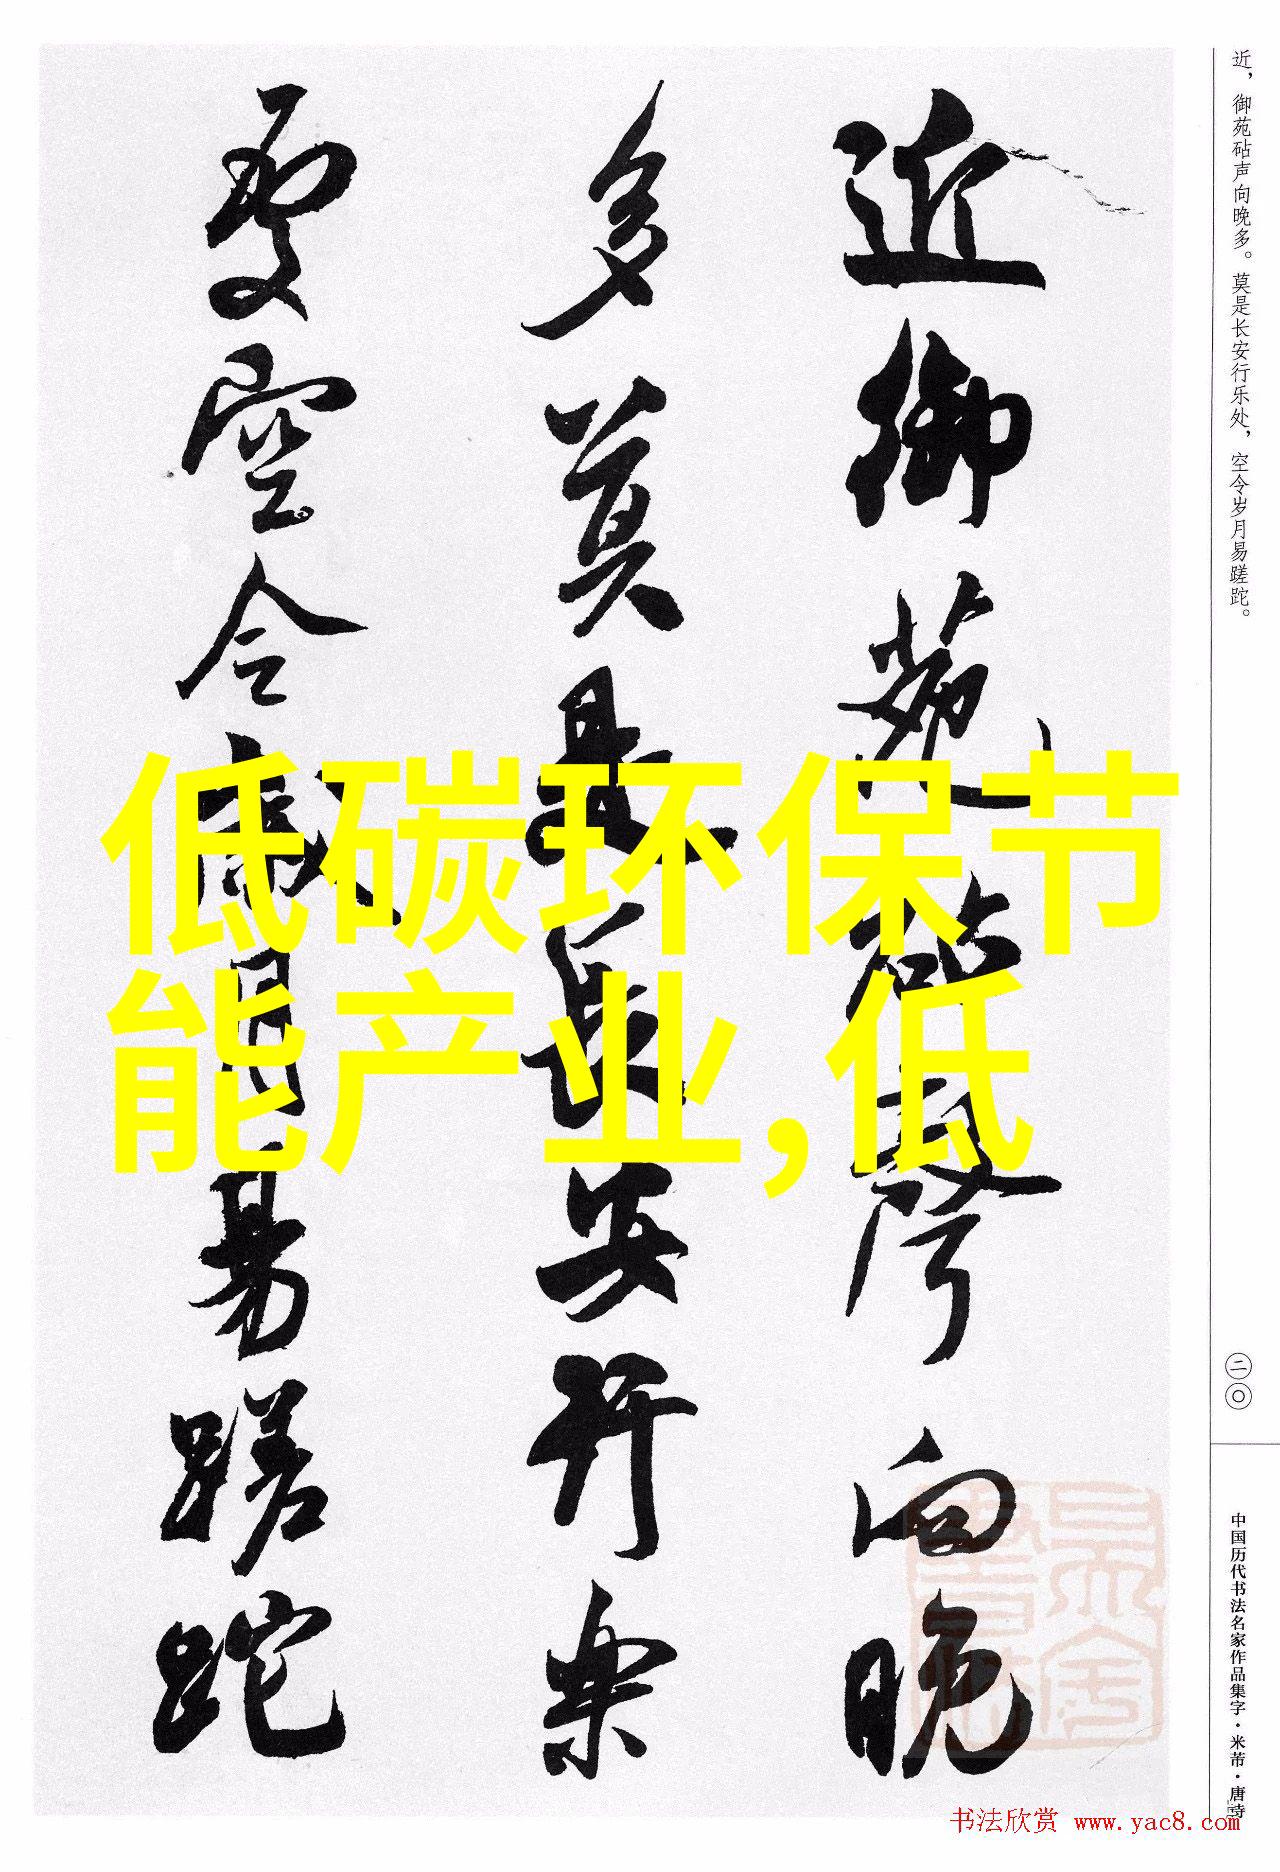 近，御苑砧声向晚多。莫是长安行乐处，空令岁月易蹉跎。
近御苑砧聲向晚
多莫是長安行樂
處空令歲月易蹉跎
低碳环保节
能产业,低
二〇
中国历代书法名家作品集字·米芾·唐诗
书法欣赏 www.yac8.com